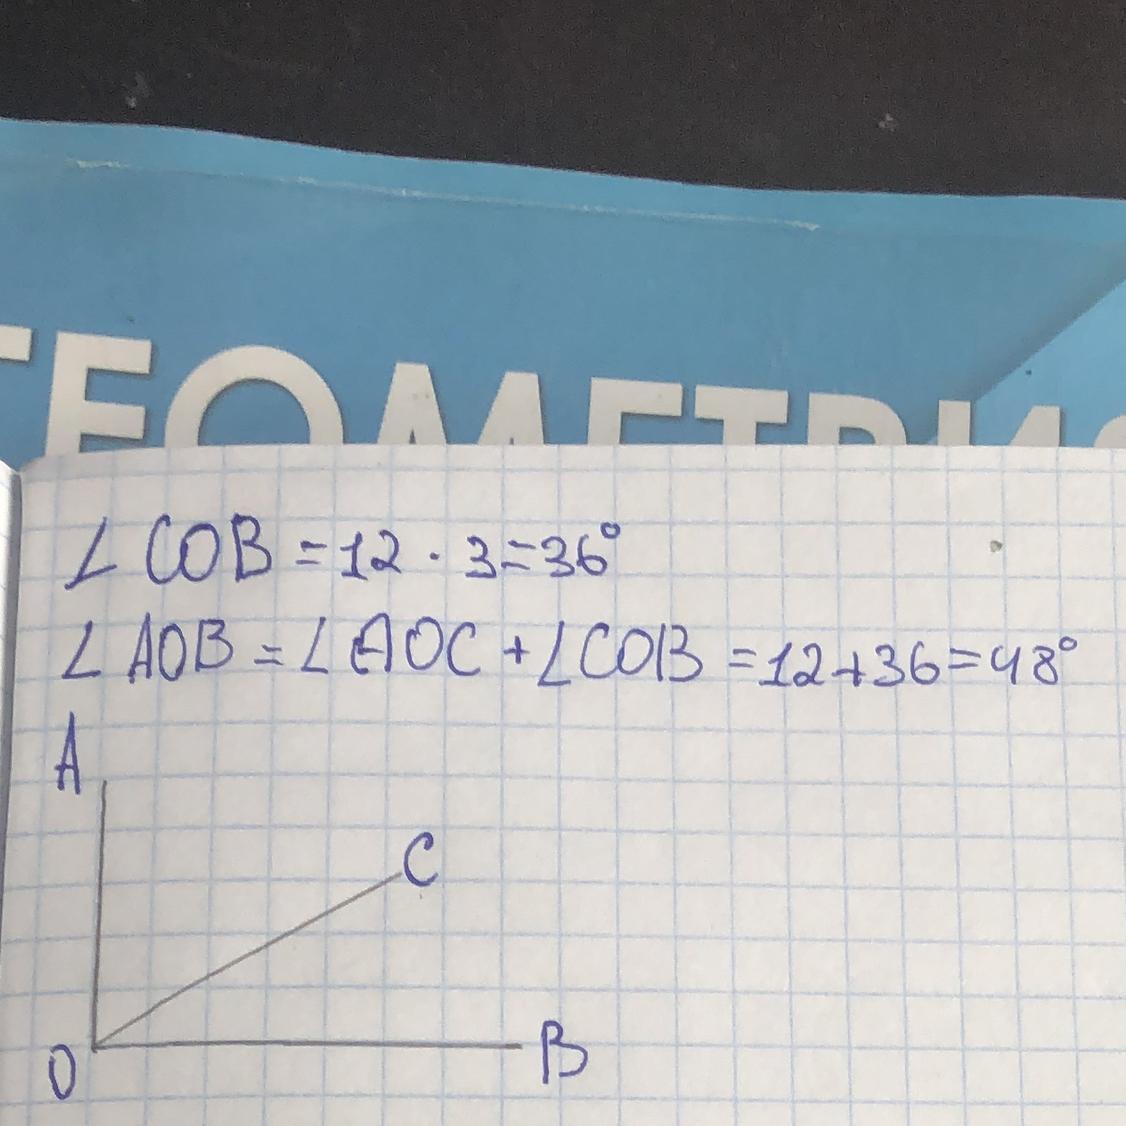 ГЕОМЕТРИЯ
∠ COB = 12 · 3 = 36°
∠ AOB = ∠ AOC + ∠ COB = 12 + 36 = 48°
A
C
O
B